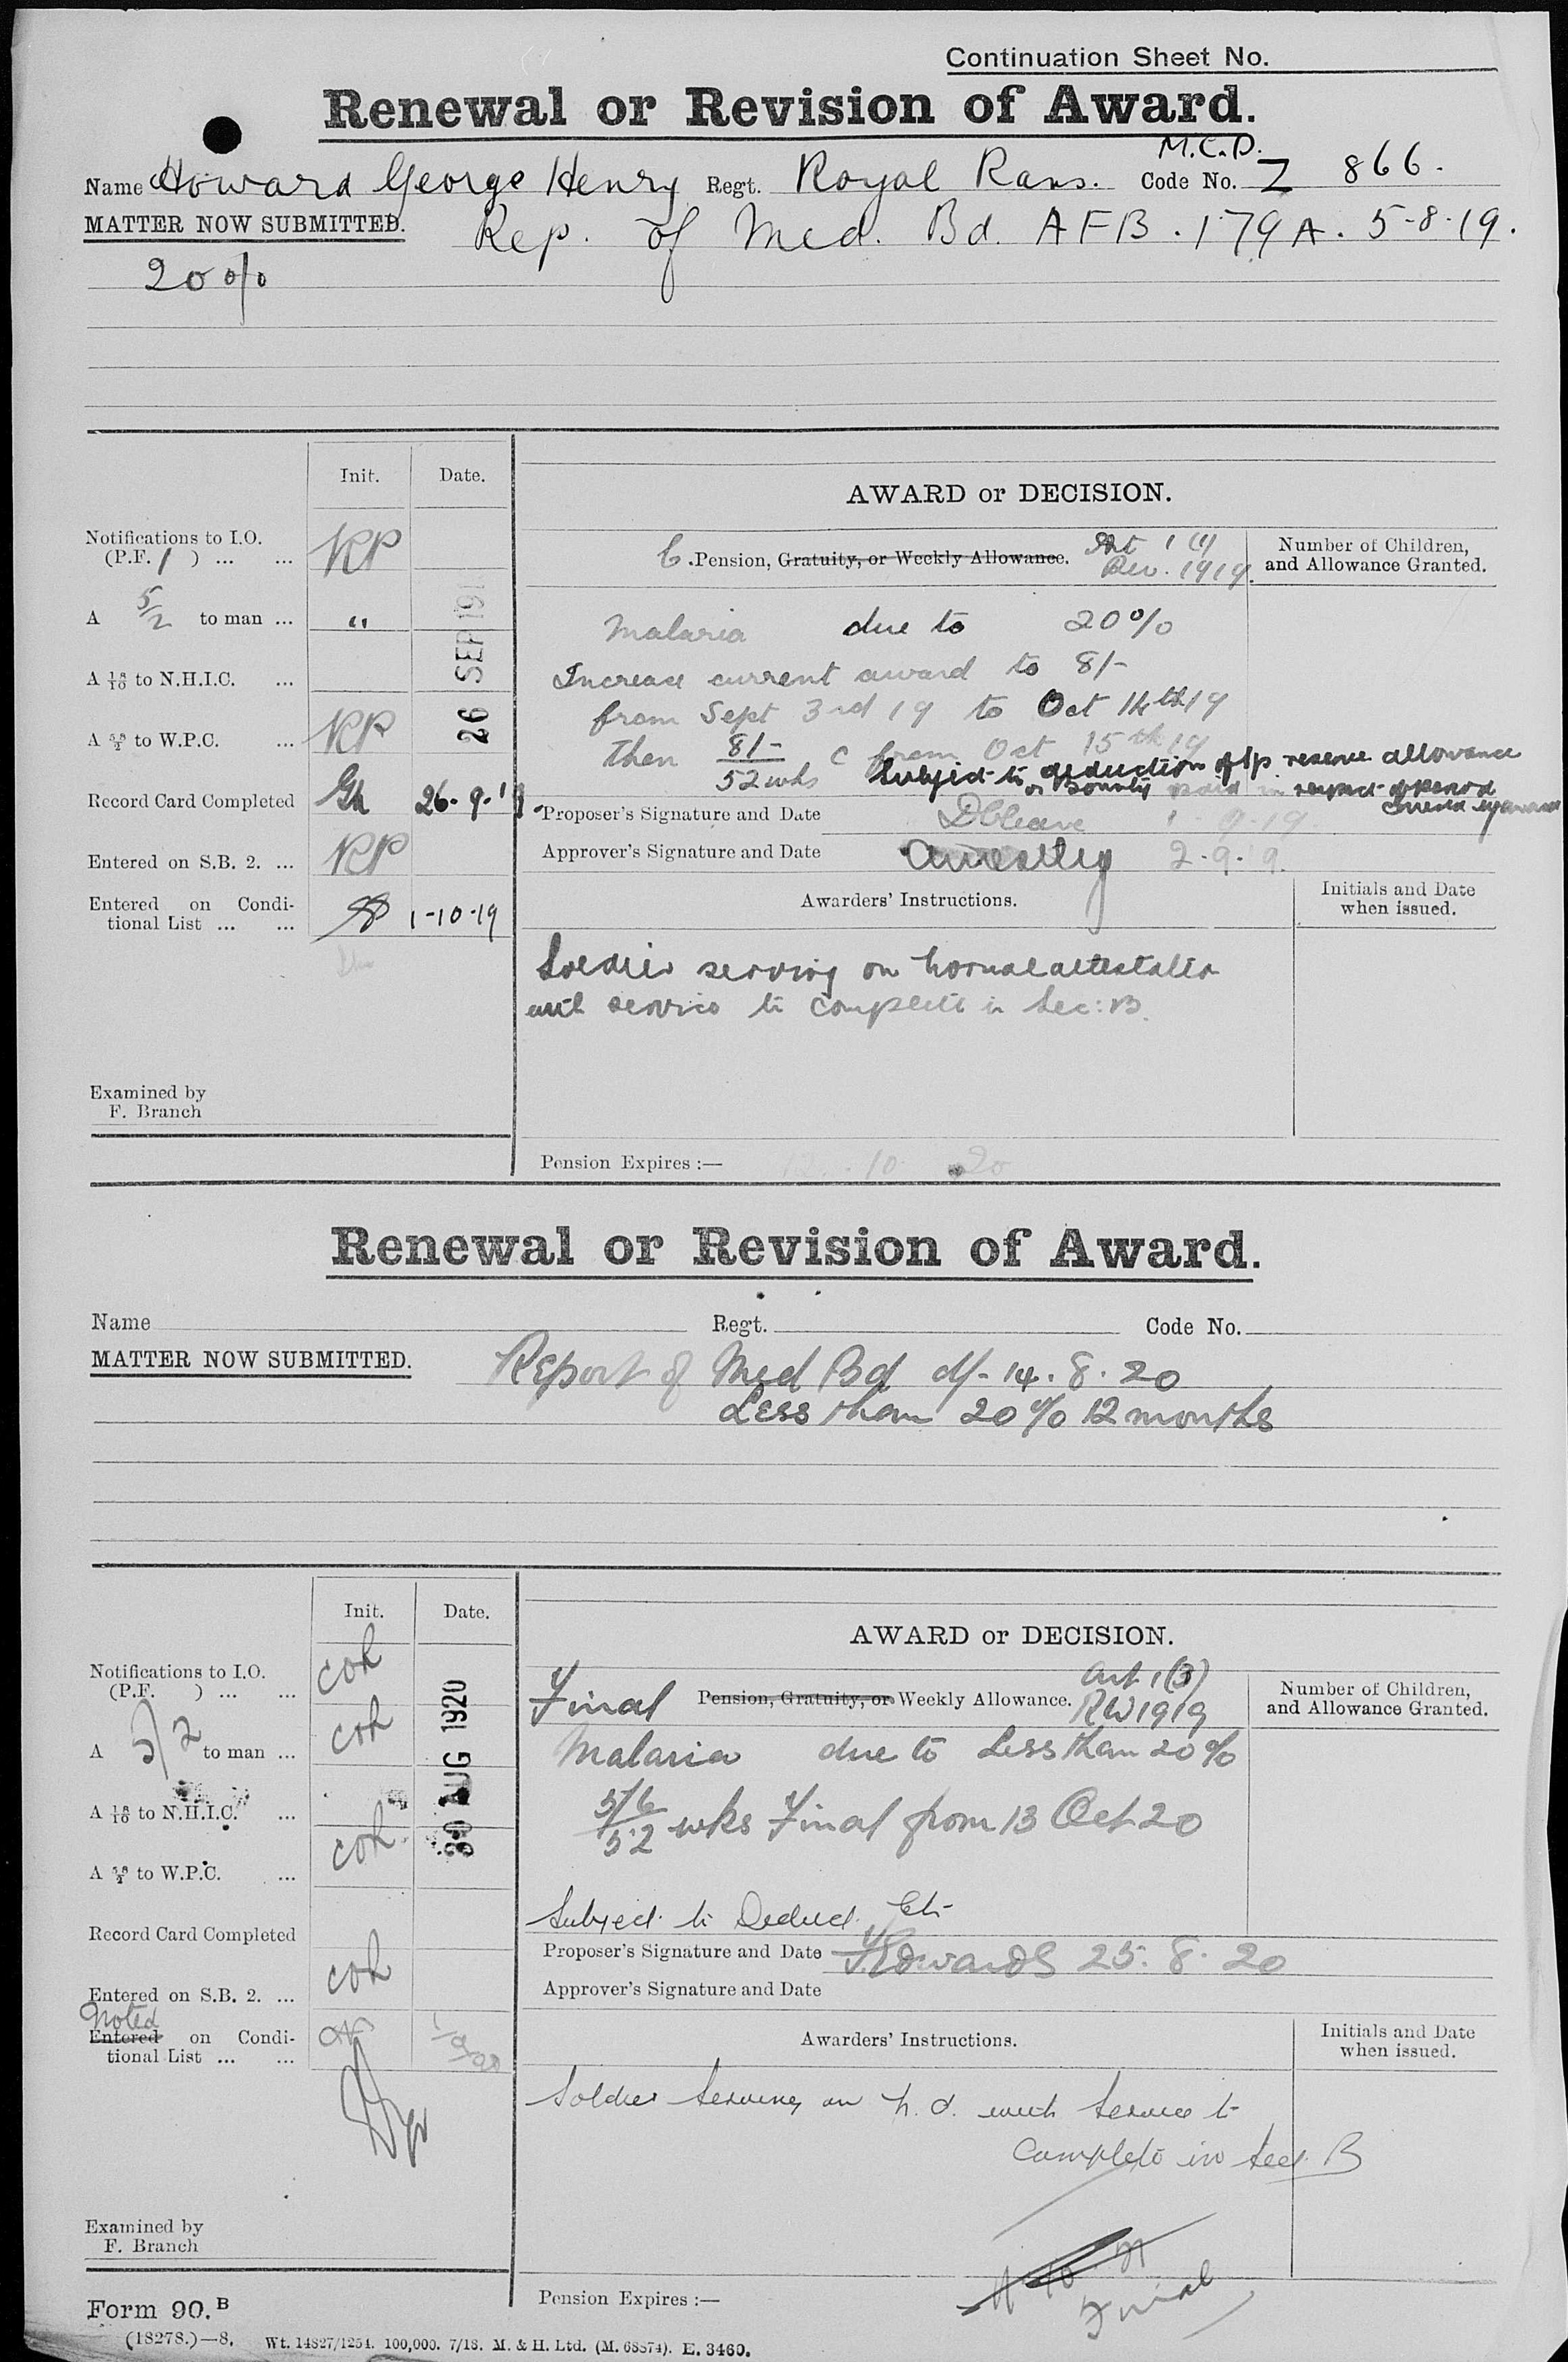 Continuation Sheet No.
Renewal or Revision of Award.
M.C.D.
Name Howard George Henry Regt. Royal Rans. Code No. Z 866.
MATTER NOW SUBMITTED. Rep. of Med. Bd. AFB. 179A. 5-8-19.
20 o/o
Init. Date.
AWARD or DECISION.
Notifications to I.O.
(P.F. 1 ) ... ... KP
C. Pension, Gratuity, or Weekly Allowance. Art 1 (1)
Rw. 1919.
Number of Children,
and Allowance Granted.
A 5/2 to man ... "
26 SEP 191
Malaria due to 20%
A 18/10 to N.H.I.C. ...
Increase current award to 8/-
from Sept 3rd 19 to Oct 14th 19
A 58/2 to W.P.C. ... KP
then 8/- C from Oct 15th 19
52 wks
Subject to deduction of 1/p reserve allowance
or Bounty paid in respect of period
Record Card Completed GH 26-9-19
Proposer's Signature and Date DCleave 1-9-19
Approver's Signature and Date 2-9-19.
Entered on S.B. 2. ... KP
Entered on Condi-
tional List ... ... 1-10-19
Awarders' Instructions.
Initials and Date
when issued.
Soldier serving on normal attestation
with service to complete in Sec: B.
Examined by
F. Branch
Pension Expires :— 12-10-20
Renewal or Revision of Award.
Name Regt. Code No.
MATTER NOW SUBMITTED. Report of Med Bd d/- 14.8.20
Less than 20% 12 months
Init. Date.
AWARD or DECISION.
Notifications to I.O.
(P.F. ) ... ... coh
Final Pension, Gratuity, or Weekly Allowance. Art 1 (3)
RW 1919
Number of Children,
and Allowance Granted.
A 5/2 to man ... coh
30 AUG 1920
Malaria due to Less than 20%
A 18/10 to N.H.I.C. ...
5/6
52 wks Final from 13 Oct 20
A 58/2 to W.P.C. ... coh
Record Card Completed
Subject to Deduct. Etc
Proposer's Signature and Date Edwards 25.8.20
Entered on S.B. 2. ... coh
Approver's Signature and Date
Noted
Entered on Condi-
tional List ... ...
Awarders' Instructions.
Initials and Date
when issued.
Soldier Serving on N.A. with Service to
Complete in Sec. B
Examined by
F. Branch
Pension Expires :—
Final
Form 90.B
(18278.)—8. Wt. 14827/1254. 100,000. 7/18. M. & H. Ltd. (M. 68874). E. 3460.